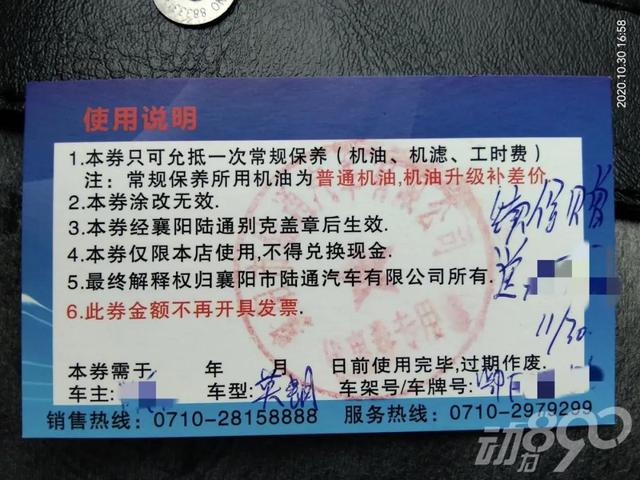 2020.10.30 16:58
使用说明
1.本券只可允抵一次常规保养(机油、机滤、工时费)
注:常规保养所用机油为普通机油,机油升级补差价
2.本券涂改无效.
3.本券经襄阳陆通别克盖章后生效.
4.本券仅限本店使用,不得兑换现金.
5.最终解释权归襄阳市陆通汽车有限公司所有.
6.此券金额不再开具发票.
续保赠
送
11/30.
本券需于 年 月 日前使用完毕,过期作废.
车主: 车型:英朗 车架号/车牌号:鄂F
销售热线:0710-28158888 服务热线:0710-2979299
动力890